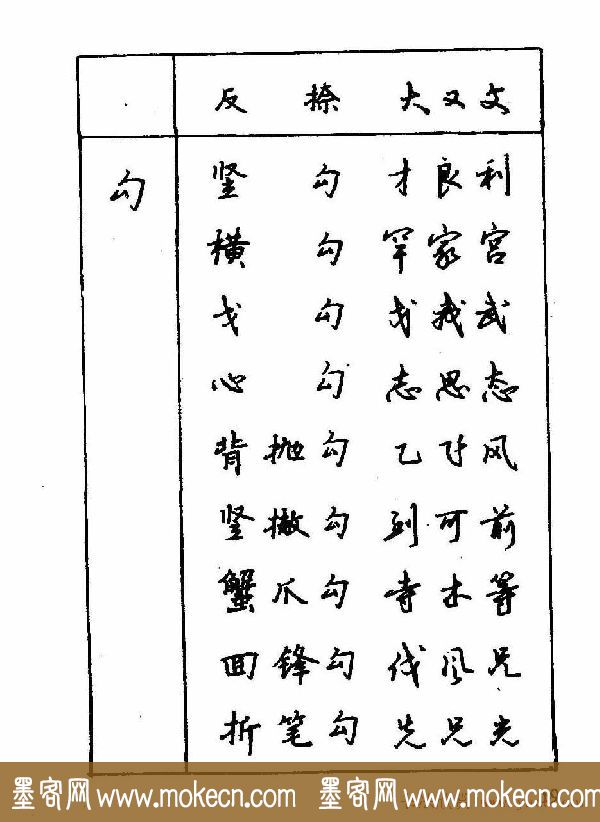 反捺 大又文
勾 竖勾 才良利
横勾 罕家宫
戈勾 戈我武
心勾 志思态
背抛勾 乙飞风
竖撇勾 列可前
蟹爪勾 寺木等
回锋勾 伐风兄
折笔勾 先兄光
墨客网 www.mokecn.com 墨客网 www.mokecn.com